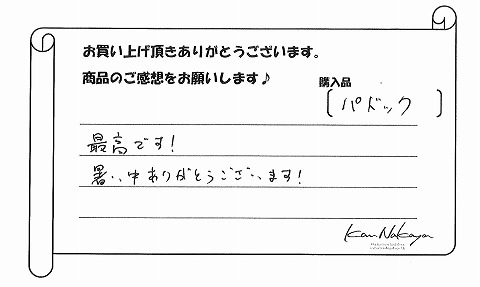 お買い上げ頂きありがとうございます。
商品のご感想をお願いします♪
購入品
[パドック]
最高です!
暑い中ありがとうございます!
Kan Nakayan